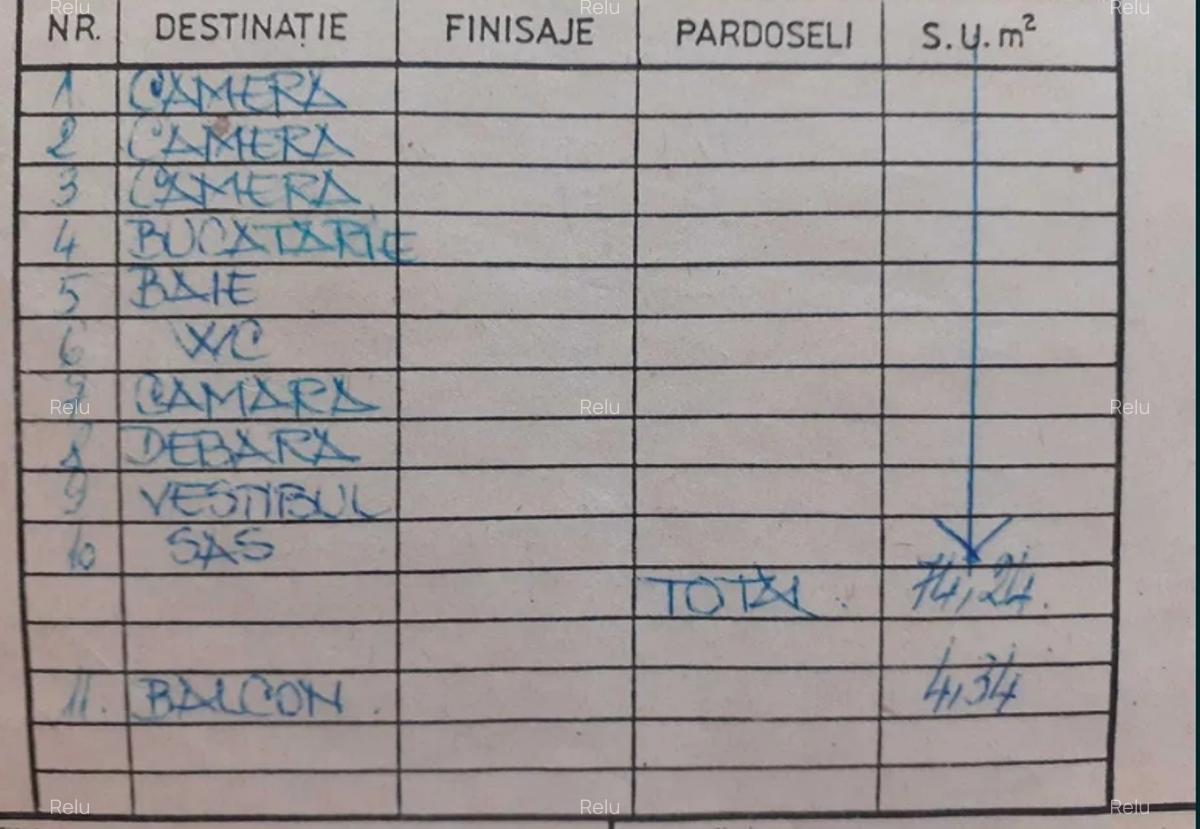 Relu Relu Relu
NR. DESTINAȚIE FINISAJE PARDOSELI S.U.m²
1 CAMERA
2 CAMERA
3 CAMERA
4 BUCATARIE
5 BAIE
6 WC
7 CAMARA
Relu Relu Relu
8 DEBARA
9 VESTIBUL
10 SAS
TOTAL 74,24
11. BALCON 4,34
Relu Relu Relu